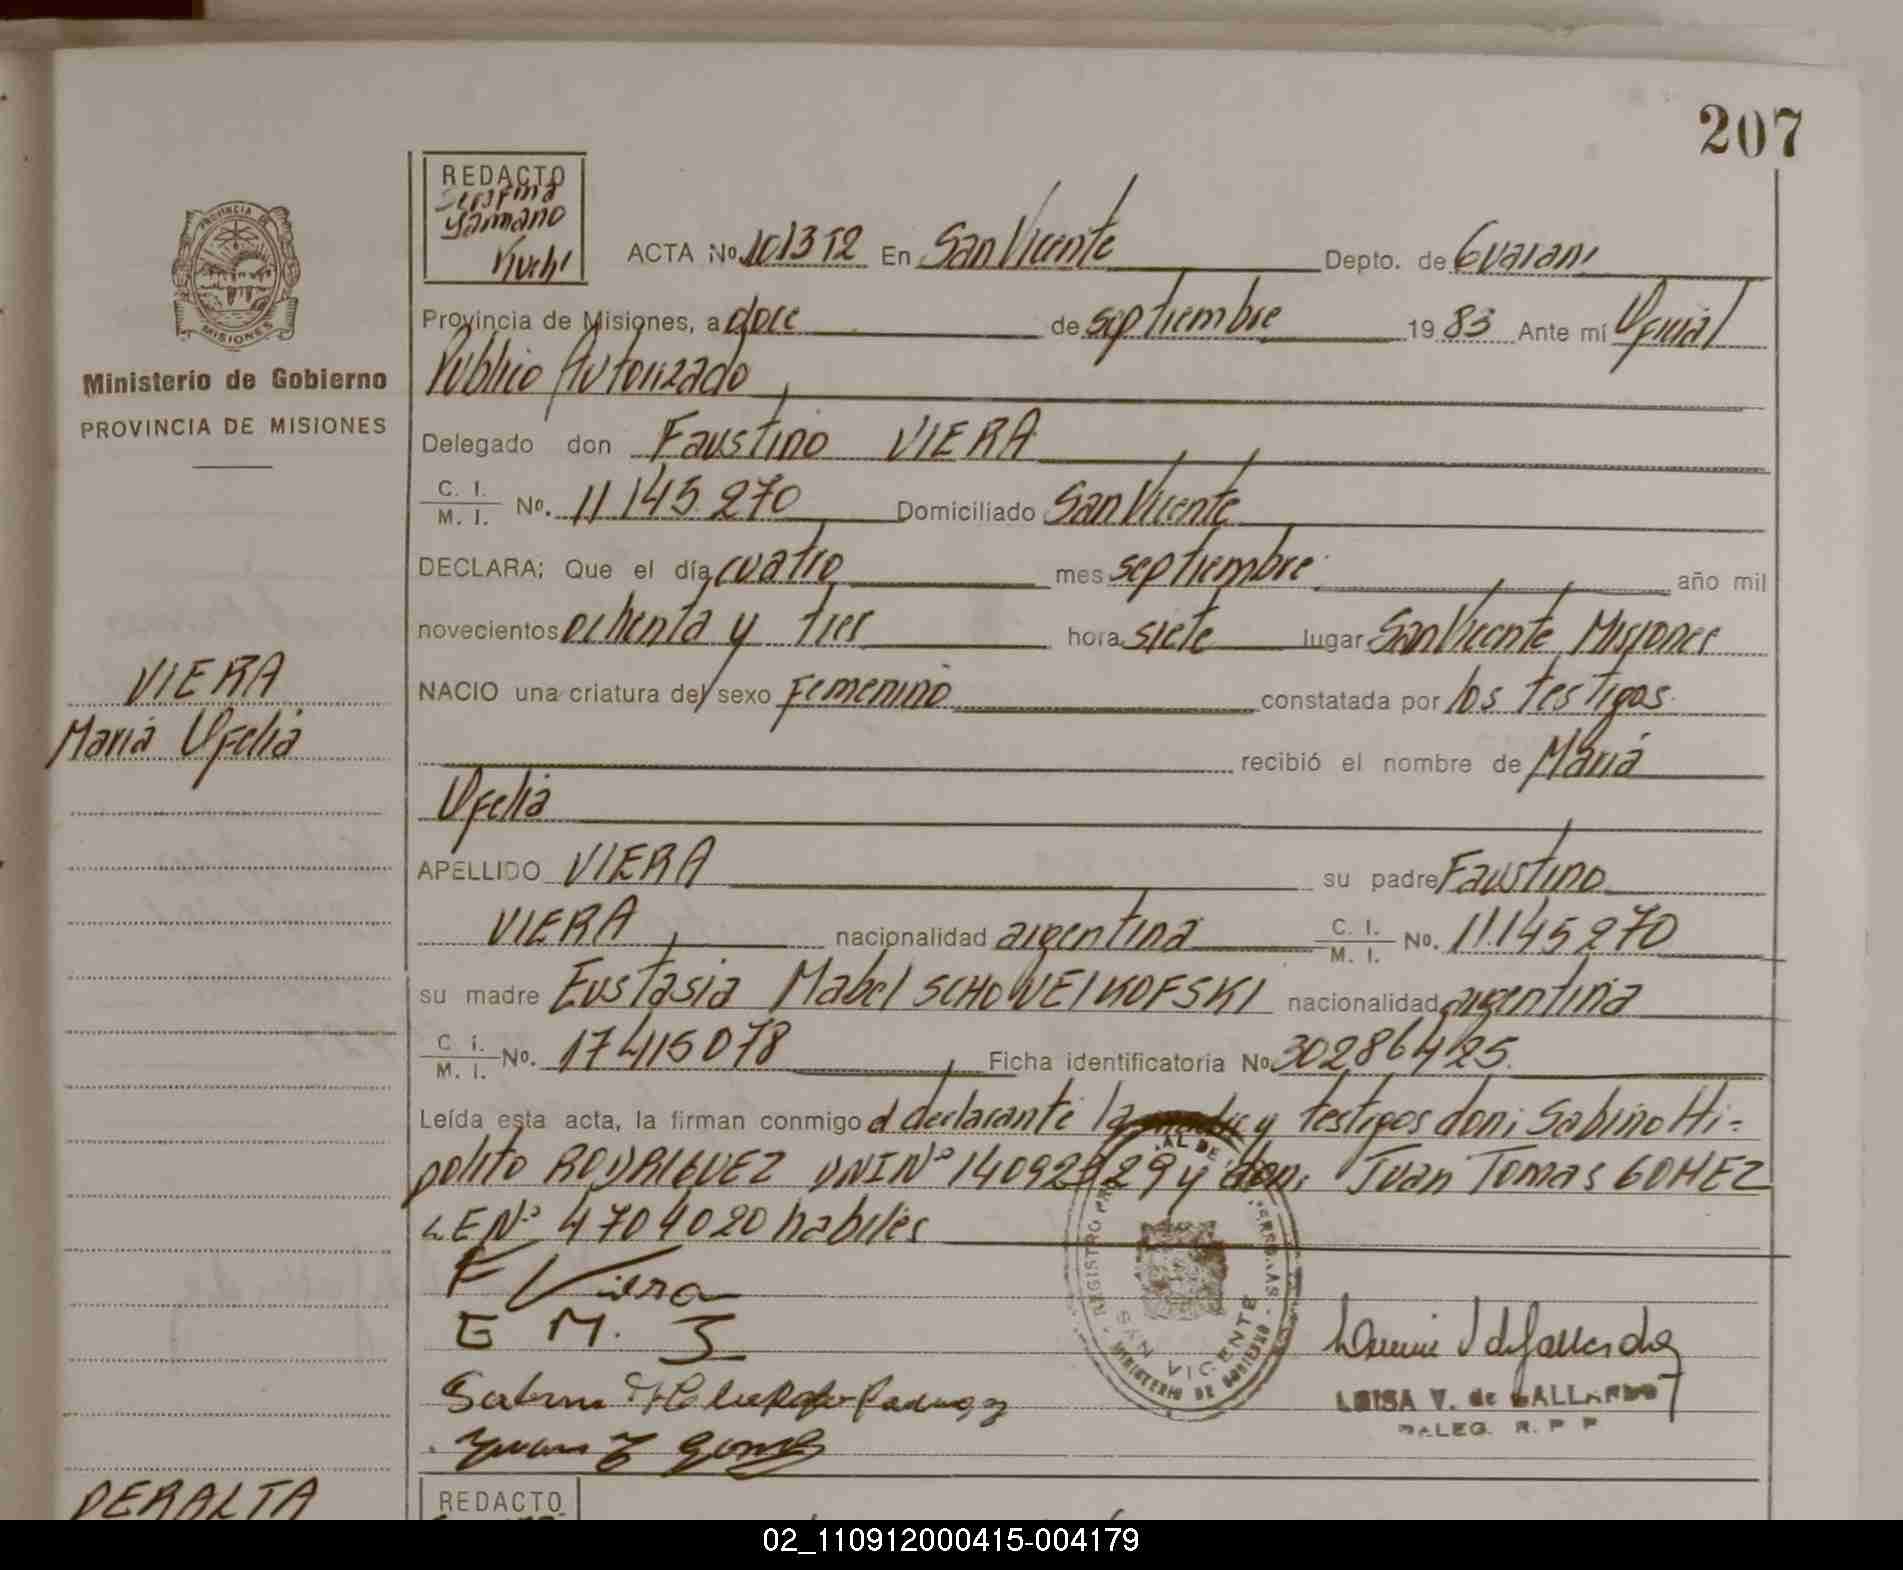 207
REDACTO
Serafina
ACTA No. 101352 En San Vicente Depto. de Guarani
Provincia de Misiones, a doce de septiembre 1983 Ante mí Oficial
Publico Autorizado
PROVINCIA DE
MISIONES
Ministerio de Gobierno
PROVINCIA DE MISIONES
Delegado don Faustino VIERA
C. I.
M. I. No. 11 145.270 Domiciliado San Vicente
DECLARA; Que el día cuatro mes septiembre año mil
novecientos ochenta y tres hora siete lugar San Vicente Misiones
VIERA
Maria Ofelia
NACIO una criatura del sexo femenino constatada por los testigos
recibió el nombre de Maria
Ofelia
APELLIDO VIERA su padre Faustino
VIERA nacionalidad argentina C. I.
M. I. No. 11.145270
su madre Eustasia Mabel SCHOVEIKOFSKI nacionalidad argentina
C. I.
M. I. No. 17415078 Ficha identificatoria No 302864125
Leída esta acta, la firman conmigo el declarante la madre y testigos don; Sabino Hi-
polito RODRIGUEZ DNI Nº 14092829 y don; Juan Tomas GOMEZ
LE Nº 4704020 habiles
F Viera
E M. S
REGISTRO
SAN VICENTE
MINISTERIO DE GOBIERNO
LUISA V. de GALLARDO
DALEG. R. P P
PERALTA
REDACTO
02_110912000415-004179